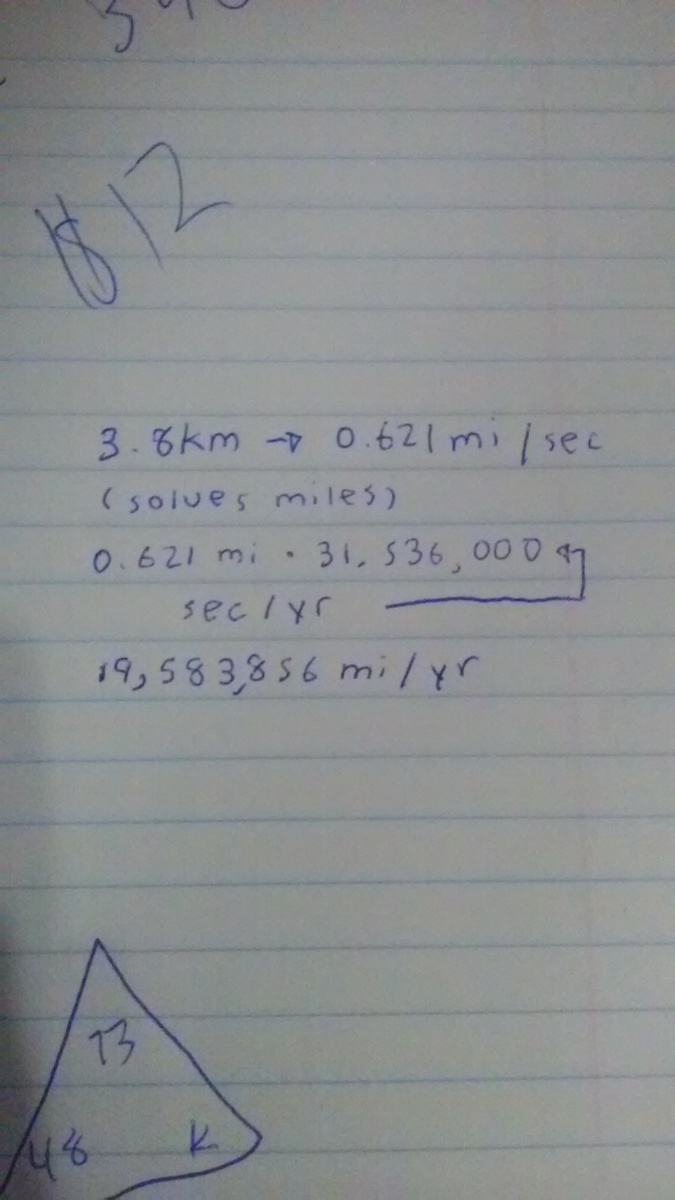 12
3.8km → 0.621 mi/sec
(solves miles)
0.621 mi · 31,536,000
sec/yr
19,583,856 mi/yr
73
48 K